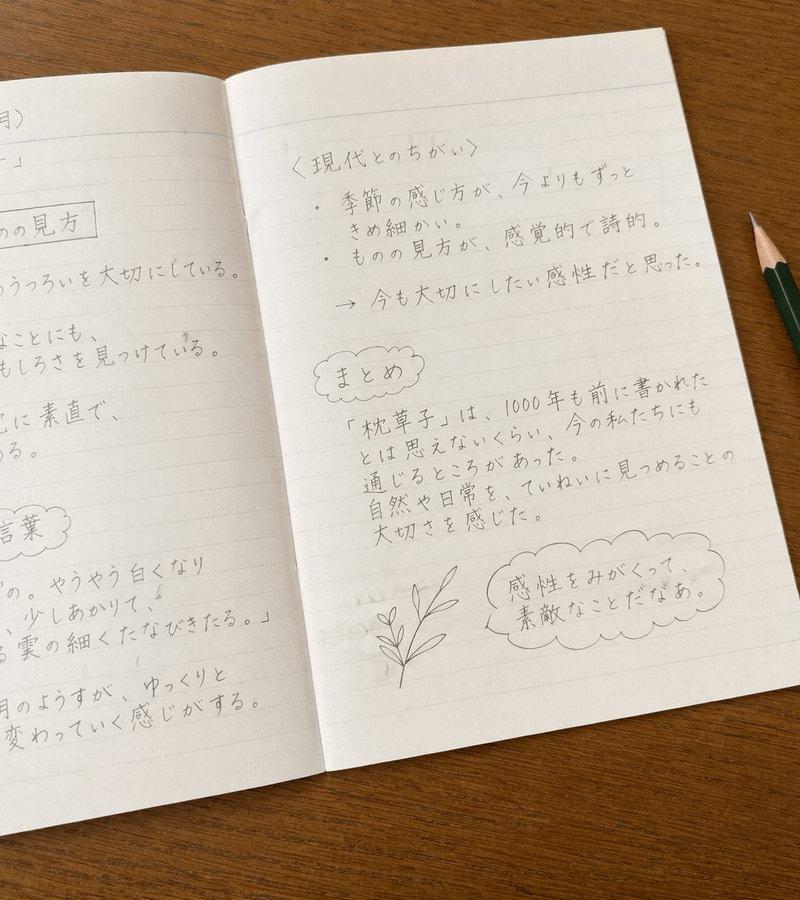 月）
」
のの見方
うつろいを大切にしている。
なことにも、
もしろさを見つけている。
に素直で、
める。
言葉
の。やうやう白くなり
、少しあかりて、
る雲の細くたなびきたる。」
月のようすが、ゆっくりと
変わっていく感じがする。
〈現代とのちがい〉
・季節の感じ方が、今よりもずっと
きめ細かい。
・ものの見方が、感覚的で詩的。
→ 今も大切にしたい感性だと思った。
まとめ
「枕草子」は、1000年も前に書かれた
とは思えないくらい、今の私たちにも
通じるところがあった。
自然や日常を、ていねいに見つめることの
大切さを感じた。
感性をみがくって、
素敵なことだなあ。